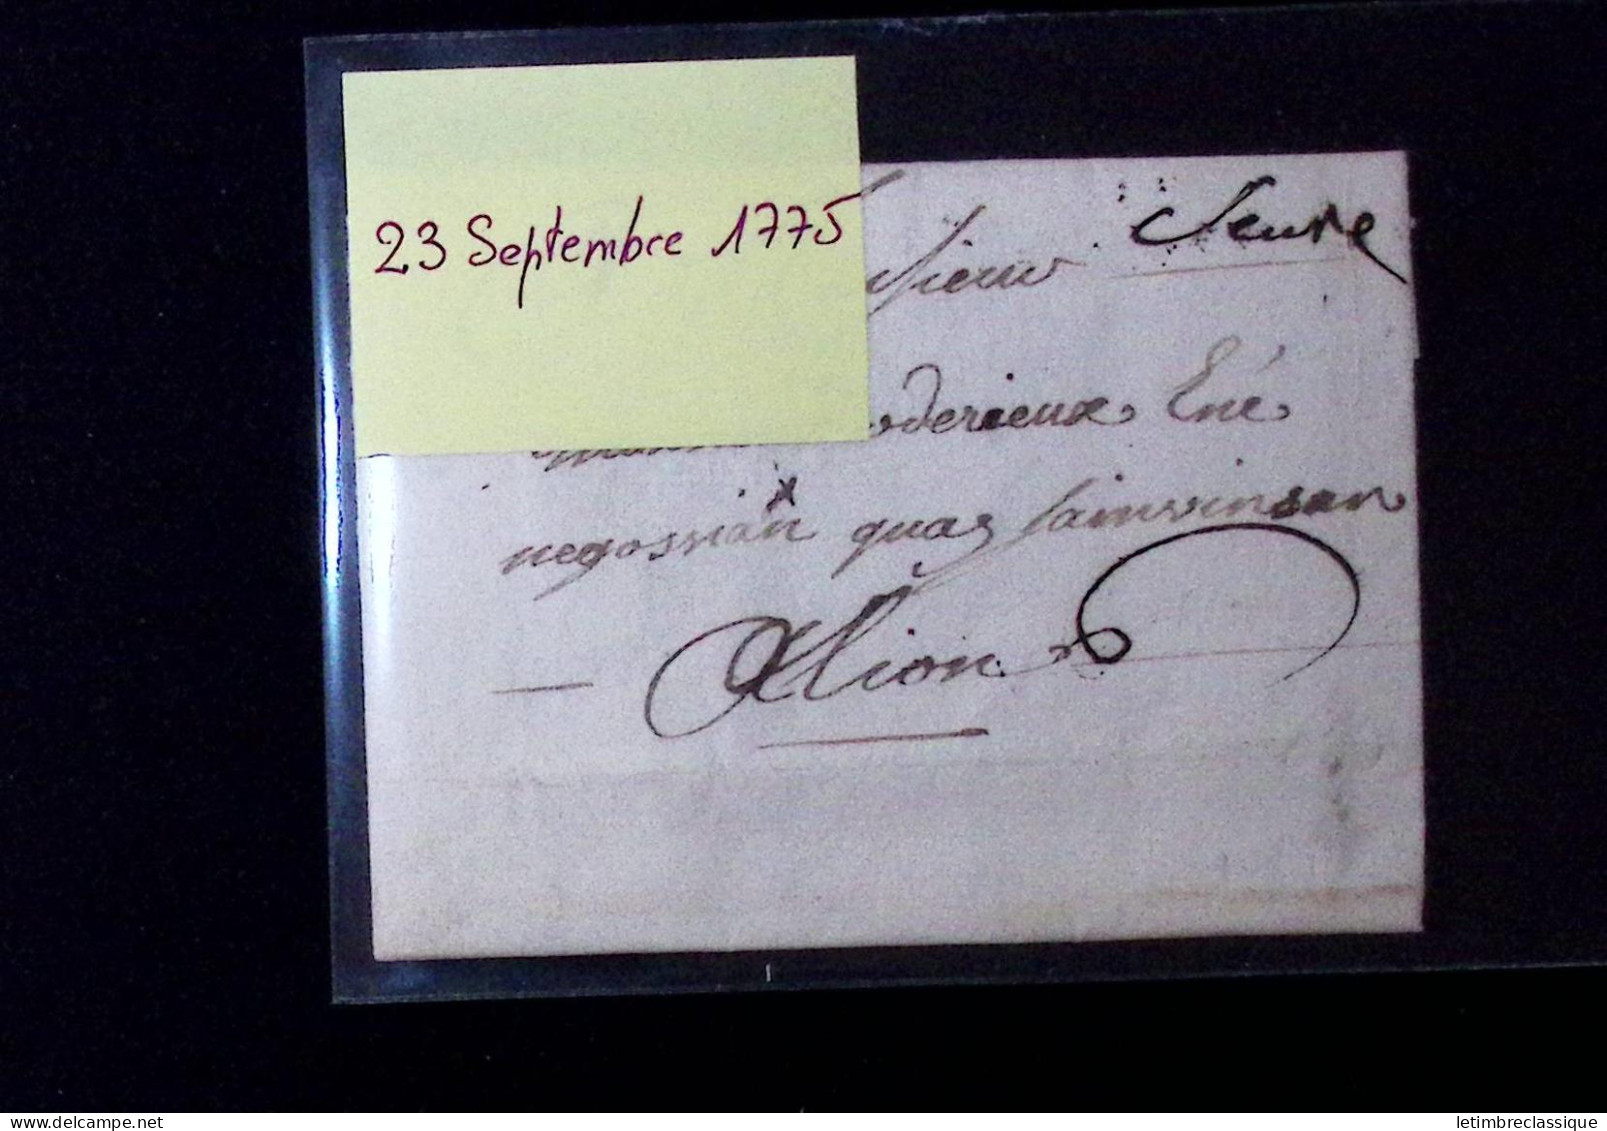 23 Septembre 1775
Seure
sieur
oderieux Ené
negossian quay Sainvinsan
Alion
letimbreclassique